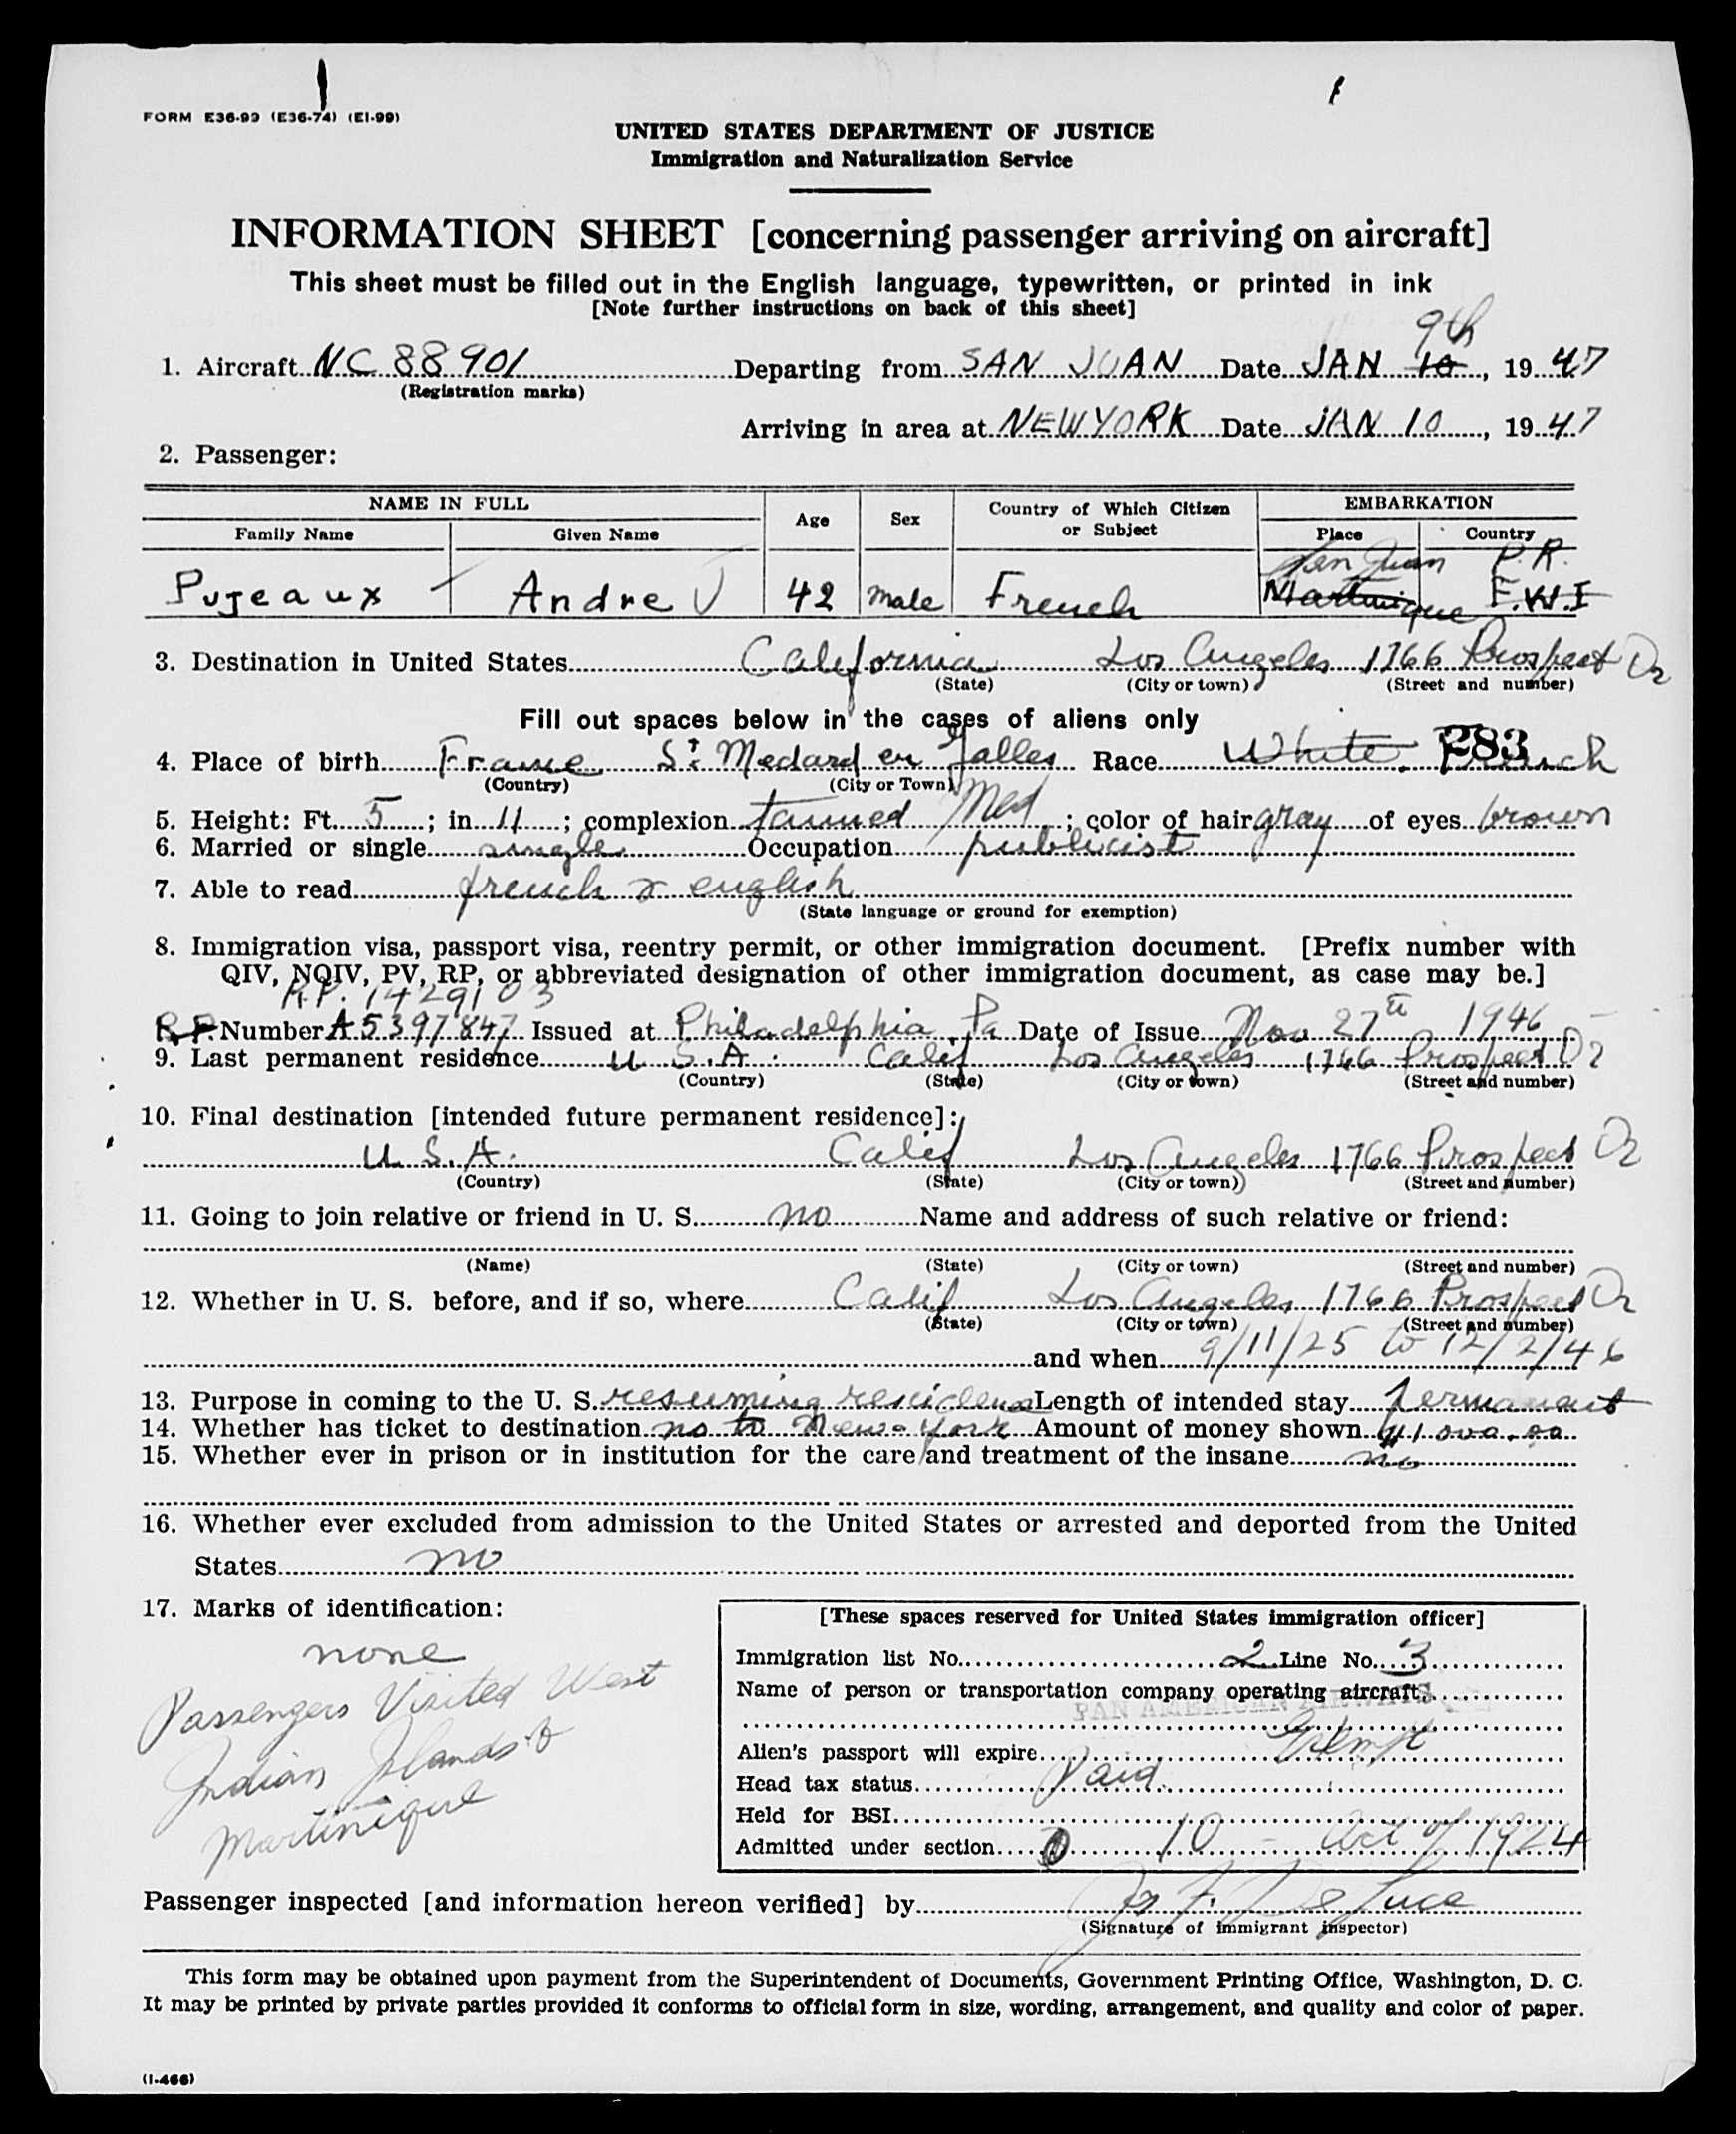 FORM E36-99 (E36-74) (EI-99)
UNITED STATES DEPARTMENT OF JUSTICE
Immigration and Naturalization Service
INFORMATION SHEET [concerning passenger arriving on aircraft]
This sheet must be filled out in the English language, typewritten, or printed in ink
[Note further instructions on back of this sheet]
9th
1. Aircraft NC 88901 Departing from SAN JUAN Date JAN 10, 1947
(Registration marks)
Arriving in area at NEW YORK Date JAN 10, 1947
2. Passenger:
NAME IN FULL Age Sex Country of Which Citizen or Subject EMBARKATION
Family Name Given Name Place Country
San Juan P.R.
Pujeaux Andre J 42 male French Martinique F.W.I
3. Destination in United States California Los Angeles 1766 Prospect Dr
(State) (City or town) (Street and number)
Fill out spaces below in the cases of aliens only
4. Place of birth France St. Medard en Jalles Race White French 283
(Country) (City or Town)
5. Height: Ft. 5; in. 11; complexion tanned Med; color of hair gray of eyes brown
6. Married or single single Occupation publicist
7. Able to read french & english
(State language or ground for exemption)
8. Immigration visa, passport visa, reentry permit, or other immigration document. [Prefix number with
QIV, NQIV, PV, RP, or abbreviated designation of other immigration document, as case may be.]
R.P. 1429103
R.P. Number A5397847 Issued at Philadelphia, Pa Date of Issue Nov 27th 1946
9. Last permanent residence U.S.A. Calif Los Angeles 1766 Prospect Dr
(Country) (State) (City or town) (Street and number)
10. Final destination [intended future permanent residence]:
U.S.A. Calif Los Angeles 1766 Prospect Dr
(Country) (State) (City or town) (Street and number)
11. Going to join relative or friend in U. S. no Name and address of such relative or friend:
(Name) (State) (City or town) (Street and number)
12. Whether in U. S. before, and if so, where Calif Los Angeles 1766 Prospect Dr
(State) (City or town) (Street and number)
and when 9/11/25 to 12/2/46
13. Purpose in coming to the U. S. resuming residence Length of intended stay permanant
14. Whether has ticket to destination no to New-York Amount of money shown $1000.00
15. Whether ever in prison or in institution for the care and treatment of the insane no
16. Whether ever excluded from admission to the United States or arrested and deported from the United
States no
17. Marks of identification:
none
Passengers Visited West
Indian Islands &
Martinique
[These spaces reserved for United States immigration officer]
Immigration list No. 2 Line No. 3
Name of person or transportation company operating aircraft
PAN AMERICAN AIRWAYS
Alien's passport will expire Exempt
Head tax status Paid
Held for BSI
Admitted under section 10 - Act of 1924
Passenger inspected [and information hereon verified] by Jos F. De Luca
(Signature of immigrant inspector)
This form may be obtained upon payment from the Superintendent of Documents, Government Printing Office, Washington, D. C.
It may be printed by private parties provided it conforms to official form in size, wording, arrangement, and quality and color of paper.
(I-466)